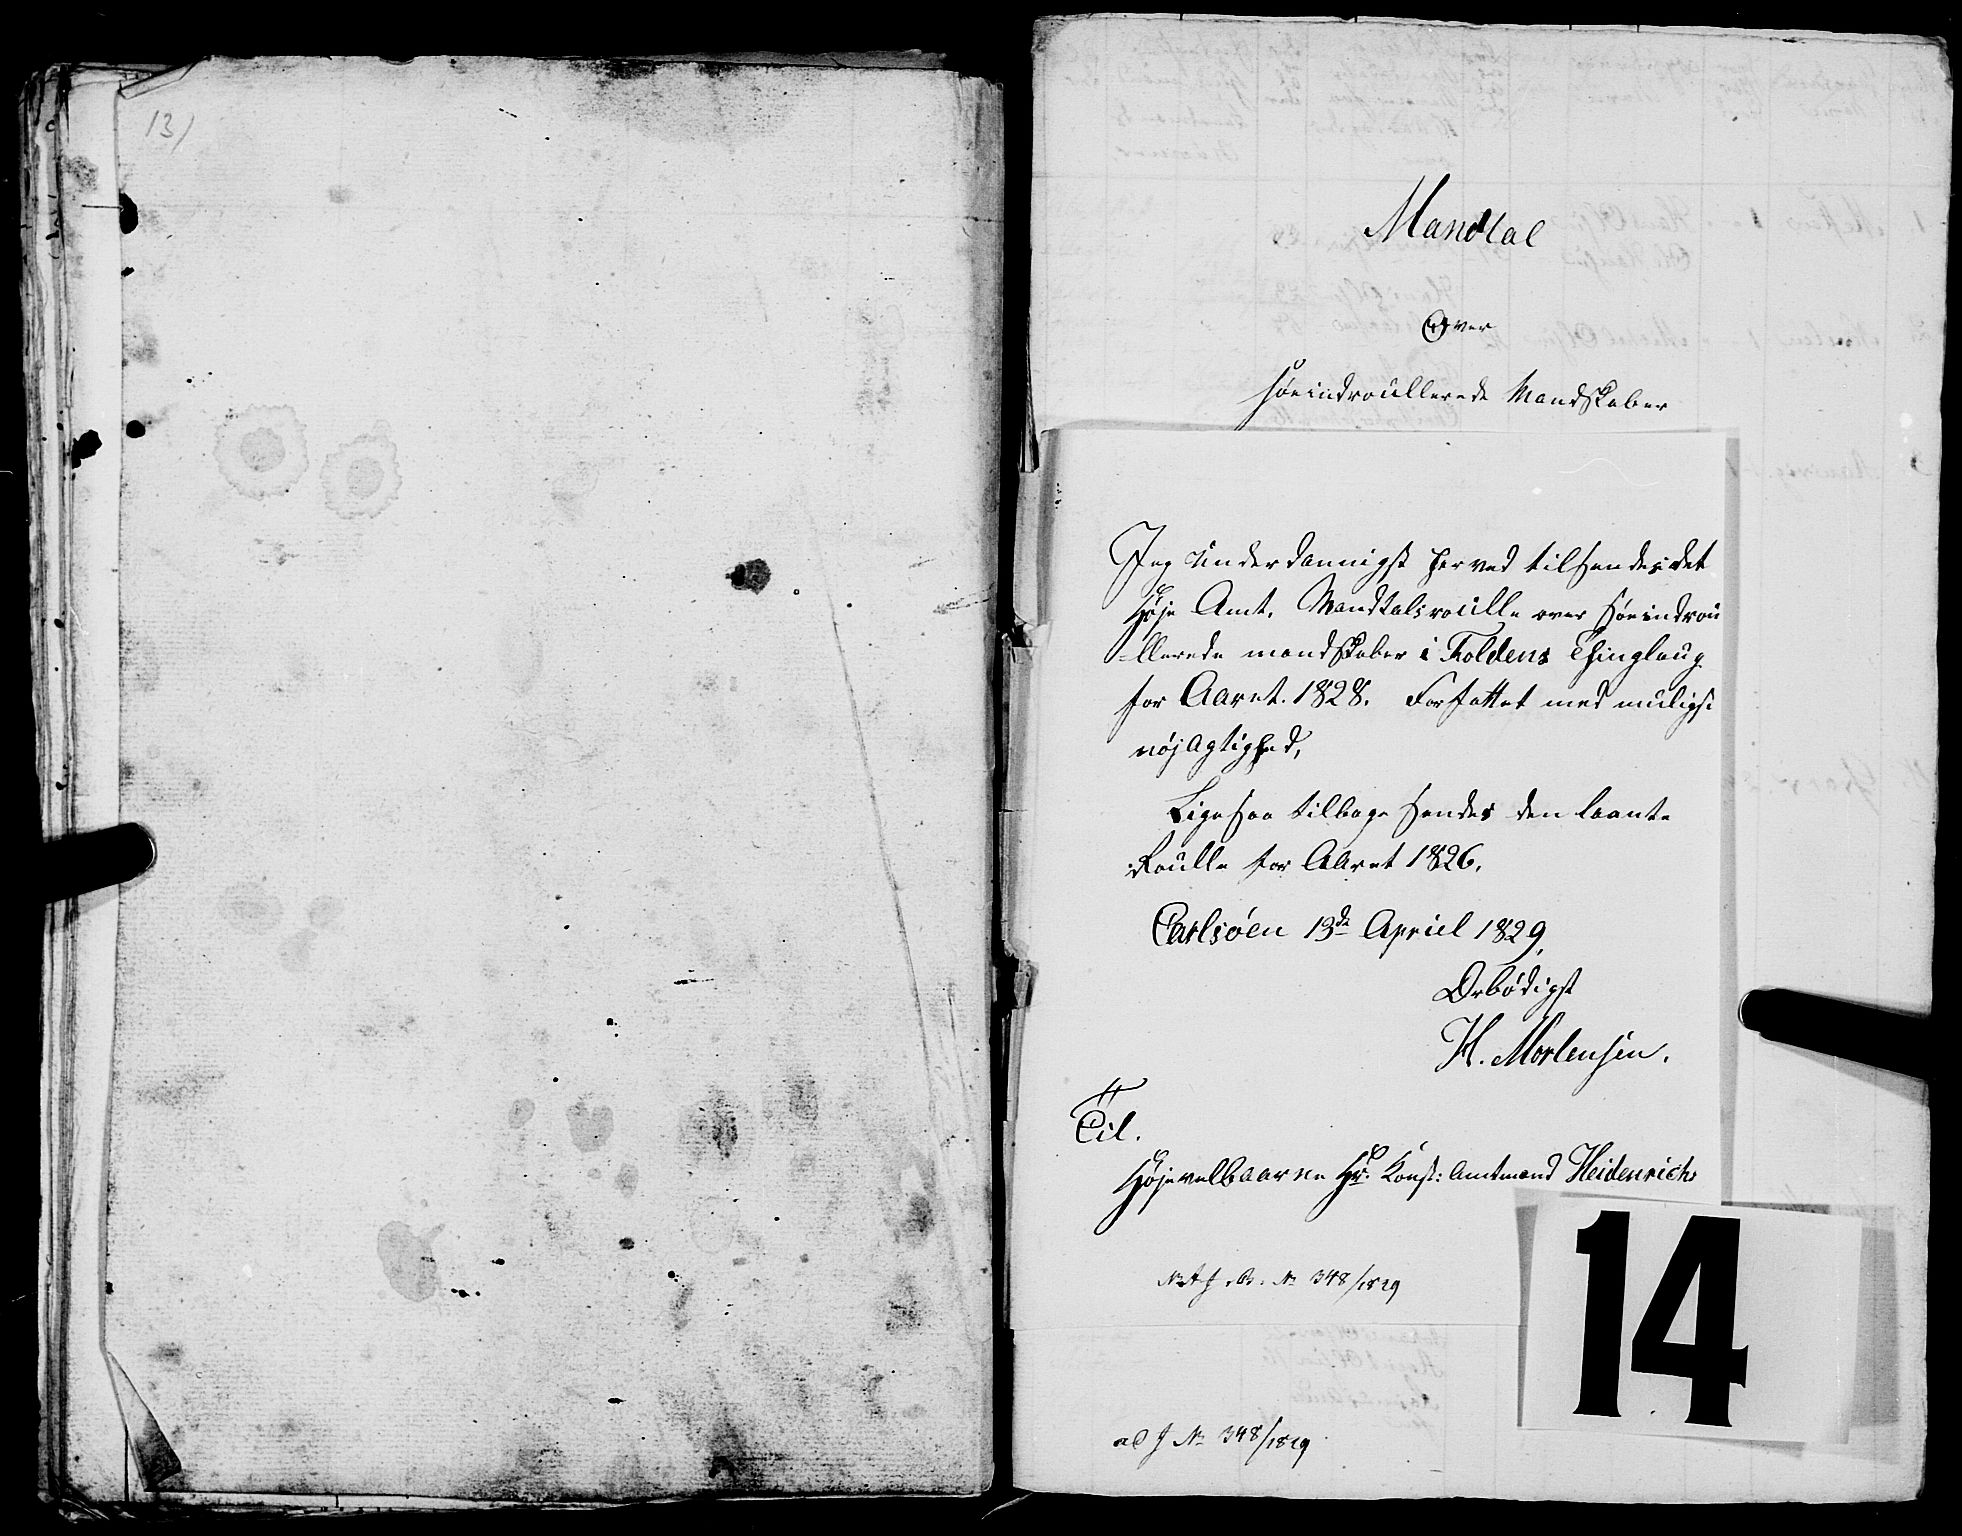 13)
Mandtal
Over
Søeindroullerede Mandskaber
Jeg underdannigst herved tilsendes det
Høje Amt, Mandtalsroulle over Søeindrou
-llerede mandskaber i Foldens Thinglaug
for Aaret. 1828. Forfattet med muligst
nøjagtighed,
Ligesaa tilbage sendes den laante
Roulle for Aaret 1826.
Carlsöen 13de Apriel 1829,
Ærbødigst
H. Mortensen.
Til.
Højvelbaarne Hr. Const: Amtmand Heidenrich
N. A. J. No 348/1829
14
ad J No 348/1829